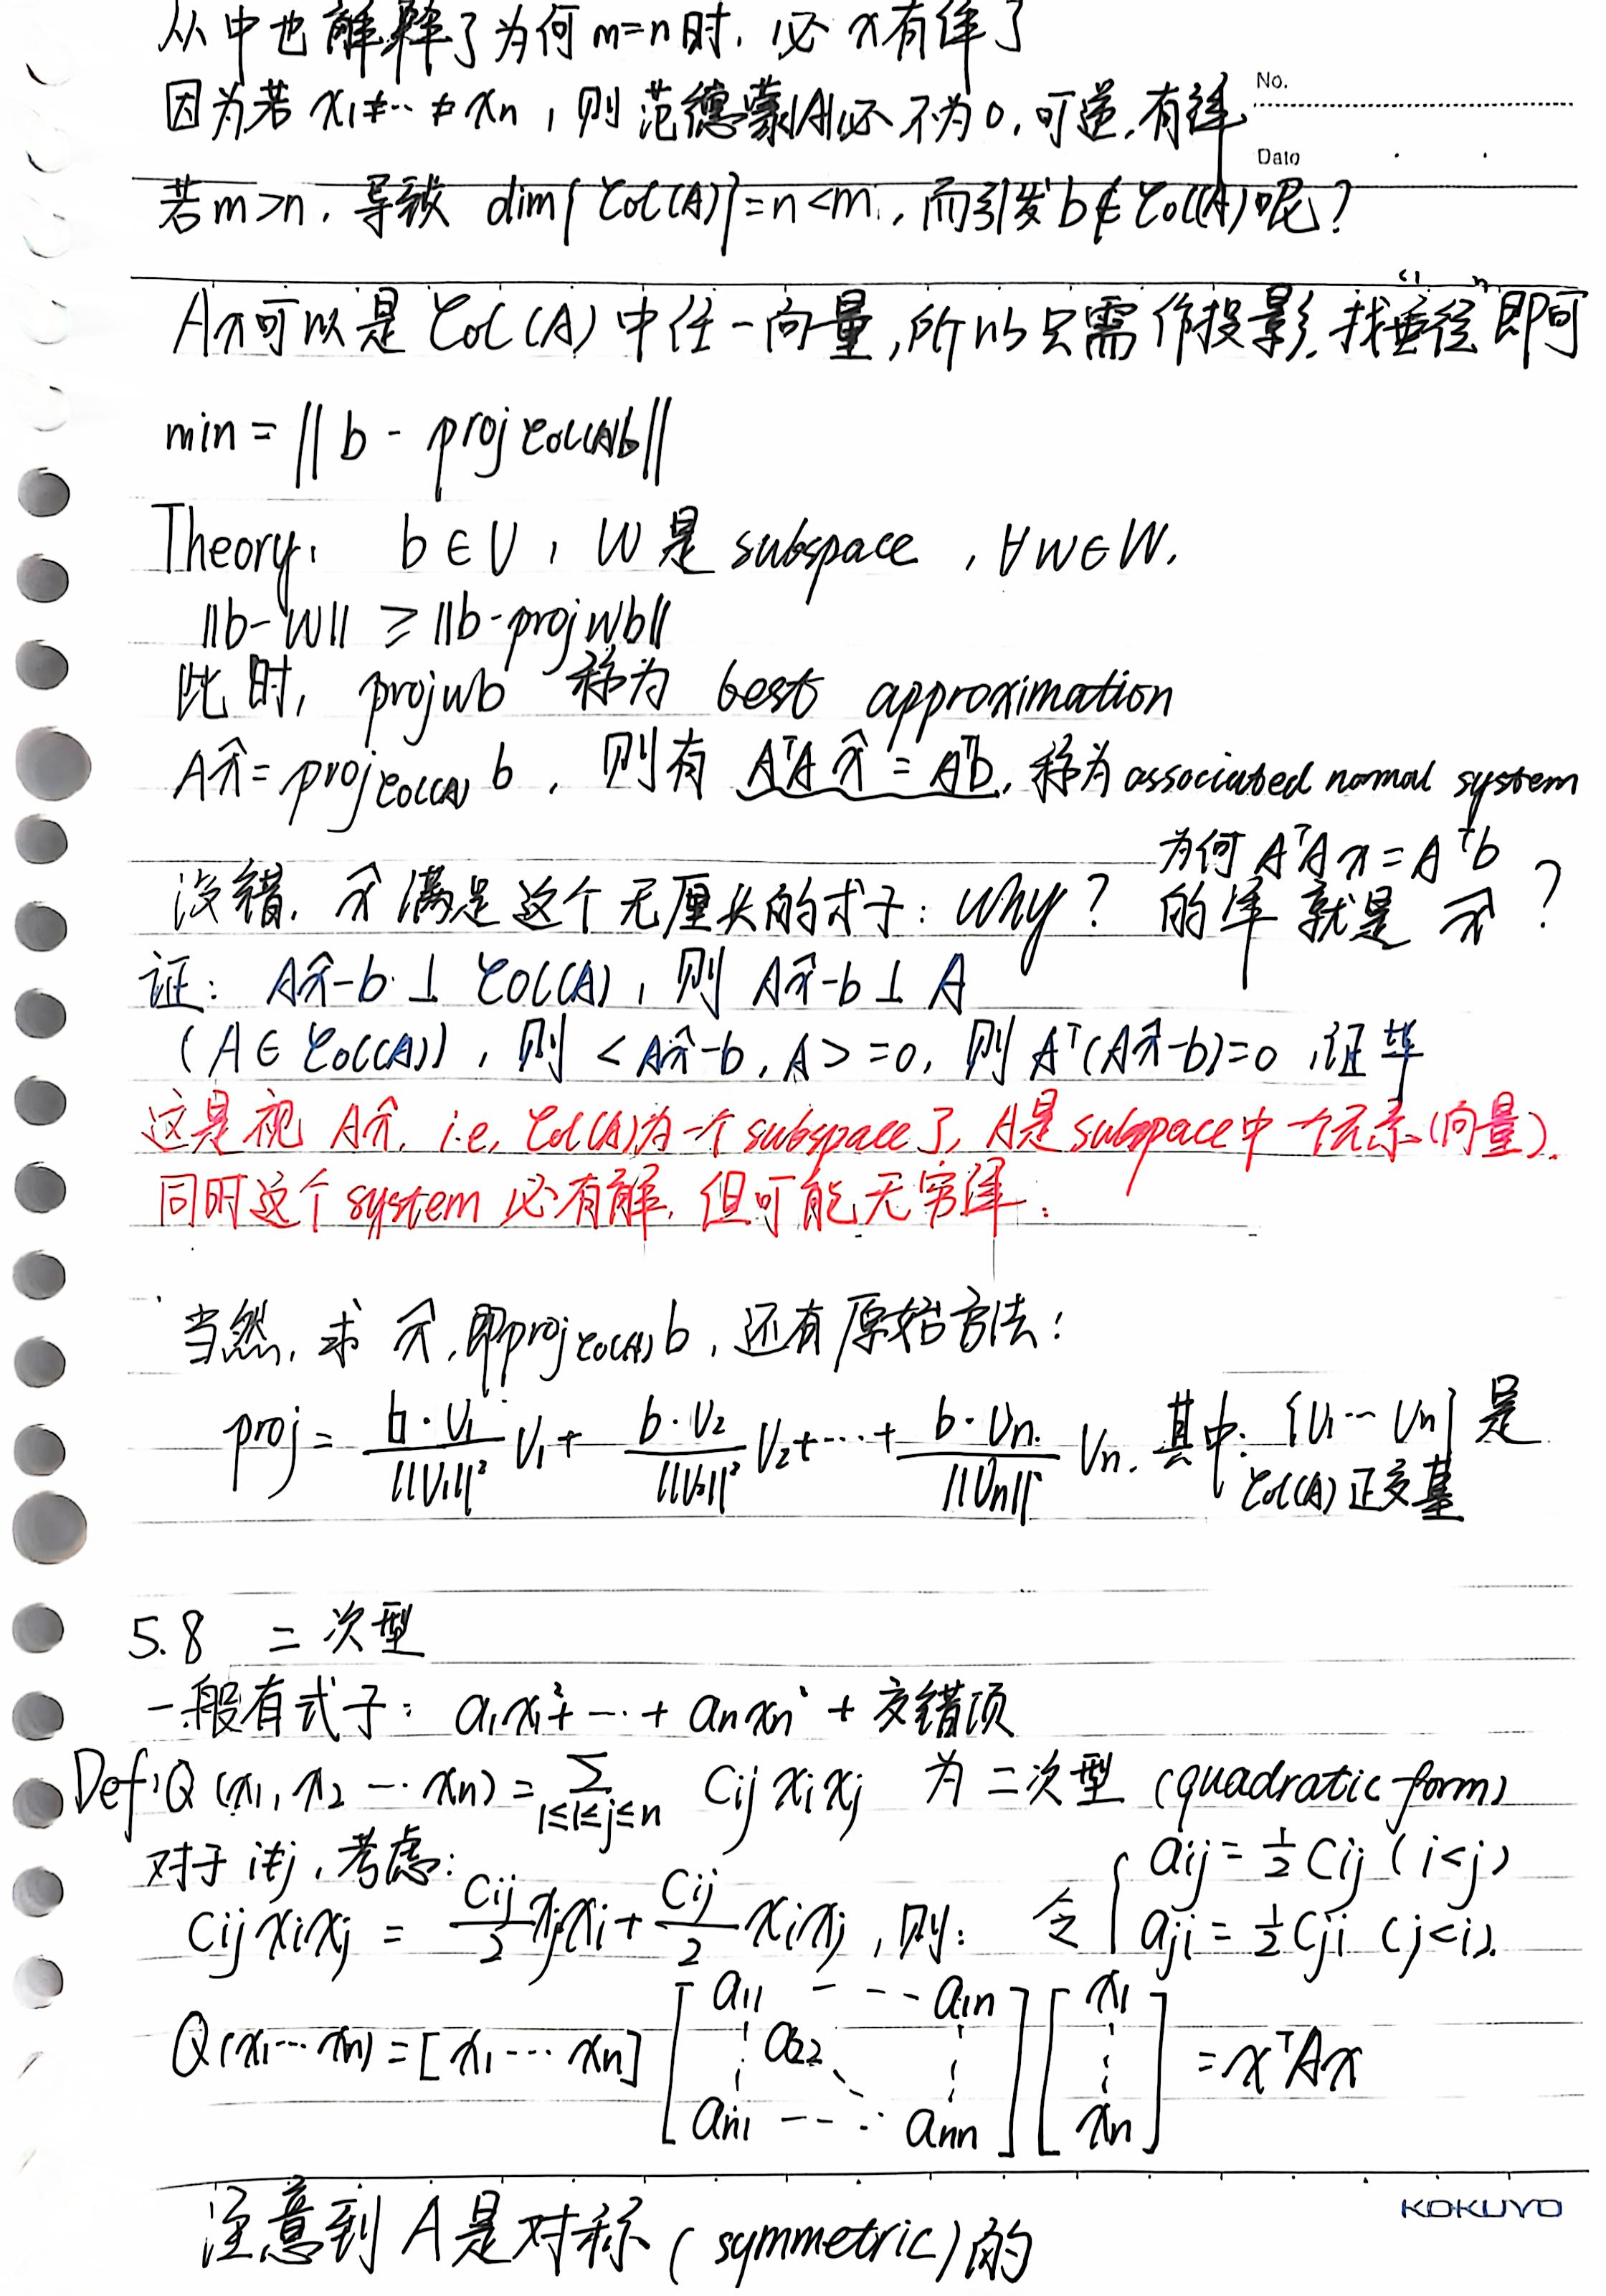 从中也解释了为何 m=n 时，必 x 有解了
No.
因为若 x₁≠…≠xₙ，则范德蒙|A|必不为0，可逆，有解
Date
若 m>n，导致 dim{Col(A)}=n<m，而引发 b∉Col(A) 呢？
Ax可以是 Col(A) 中任一向量，所以只需作投影，找"垂径"即可
min = ||b - proj_Col(A) b||
Theory: b∈V，W是 subspace，∀w∈W，
||b-w|| ≥ ||b-proj_W b||
此时，proj_W b 称为 best approximation
Ax̂ = proj_Col(A) b，则有 AᵀAx̂ = Aᵀb，称为 associated normal system
没错，x̂ 满足这个无厘头的式子：Why？ 为何 AᵀAx=Aᵀb 的解就是 x̂？
证：Ax̂-b ⊥ Col(A)，则 Ax̂-b ⊥ A
(A∈Col(A))，则 <Ax̂-b, A>=0，则 Aᵀ(Ax̂-b)=0，证毕
这是视 Ax̂，i.e, Col(A)为一个subspace了，A是subspace中一个元素(向量)．
同时这个system必有解，但可能无穷解．
当然，求 x̂，即proj_Col(A) b，还有原始方法：
proj = (b·v₁)/||v₁||² v₁ + (b·v₂)/||v₂||² v₂ + … + (b·vₙ)/||vₙ||² vₙ．其中：{v₁…vₙ}是Col(A)正交基
5.8 二次型
一般有式子：a₁x₁²+…+aₙxₙ²+交错项
Def: Q(x₁, x₂ … xₙ) = ∑_{1≤i≤j≤n} Cij xixj 为二次型 (quadratic form)
对于 i≠j，考虑：
Cij xixj = Cij/2 xjxi + Cij/2 xixj，则： 令 { aij = ½Cij (i<j)
aji = ½Cji (j<i)．
Q(x₁…xₙ) = [x₁…xₙ] [a₁₁ … a₁ₙ ⋮ a₂₂ ⋱ ⋮ aₙ₁ … aₙₙ] [x₁ ⋮ xₙ] = xᵀAx
注意到 A是对称 (symmetric)的
KOKUYO